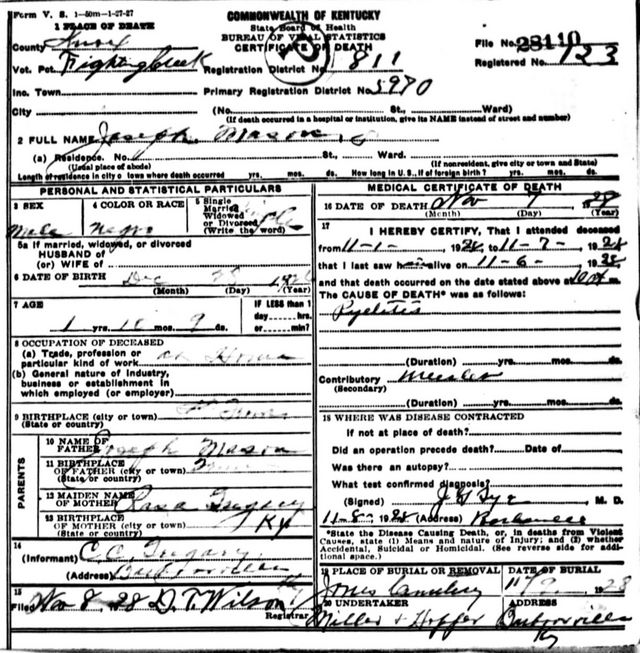 Form V. S. 1-50m-1-27-27
COMMONWEALTH OF KENTUCKY
State Board of Health
BUREAU OF VITAL STATISTICS
CERTIFICATE OF DEATH
1 PLACE OF DEATH
County Knox
File No. 28110
Vot. Pct. Fighting Creek Registration District No. 811
Registered No. 123
Inc. Town Primary Registration District No. 5970
City (No. St., Ward)
(If death occurred in a hospital or institution, give its NAME instead of street and number)
2 FULL NAME Joseph Mason
(a) Residence. No. St., Ward.
(Usual place of abode) (If nonresident, give city or town and State)
Length of residence in city or town where death occurred yrs. mos. ds. How long in U. S., if of foreign birth? yrs. mos. ds.
PERSONAL AND STATISTICAL PARTICULARS
3 SEX
Male
4 COLOR OR RACE
Negro
5 Single
Married
Widowed
or Divorced
(Write the word)
5a If married, widowed, or divorced
HUSBAND of
(or) WIFE of
6 DATE OF BIRTH Dec
(Month) (Day) (Year)
7 AGE
1 yrs. 10 mos. 9 ds.
IF LESS than 1
day hrs.
or min.
8 OCCUPATION OF DECEASED
(a) Trade, profession or
particular kind of work at Home
(b) General nature of Industry,
business or establishment in
which employed (or employer)
9 BIRTHPLACE (city or town)
(State or country)
PARENTS
10 NAME OF
FATHER Joseph Mason
11 BIRTHPLACE
OF FATHER (city or town)
(State or country)
12 MAIDEN NAME
OF MOTHER
13 BIRTHPLACE
OF MOTHER (city or town) Ky
(State or country)
14
(Informant) C.C. Gregory
(Address) Barbourville
15
Filed Nov 8, 28 D. T. Wilson
Registrar
MEDICAL CERTIFICATE OF DEATH
16 DATE OF DEATH Nov 7 1928
(Month) (Day) (Year)
17
I HEREBY CERTIFY, That I attended deceased
from 11-1- 1928 to 11-7- 1928
that I last saw h alive on 11-6- 1928
and that death occurred on the date stated above at
The CAUSE OF DEATH* was as follows:
Pyelitis
(Duration) yrs. mos. ds.
Contributory Measles
(Secondary)
(Duration) yrs. mos. ds.
18 WHERE WAS DISEASE CONTRACTED
If not at place of death?
Did an operation precede death? Date of
Was there an autopsy?
What test confirmed diagnosis?
(Signed) M. D.
11-8- 1928 (Address) Barbourville
*State the Disease Causing Death, or, in deaths from Violent
Causes, state (1) Means and nature of Injury; and (2) whether
Accidental, Suicidal or Homicidal. (See reverse side for additional space.)
19 PLACE OF BURIAL OR REMOVAL
Jones Cemetery
DATE OF BURIAL
1928
20 UNDERTAKER
Miller & Hopper
ADDRESS
Barbourville
Ky